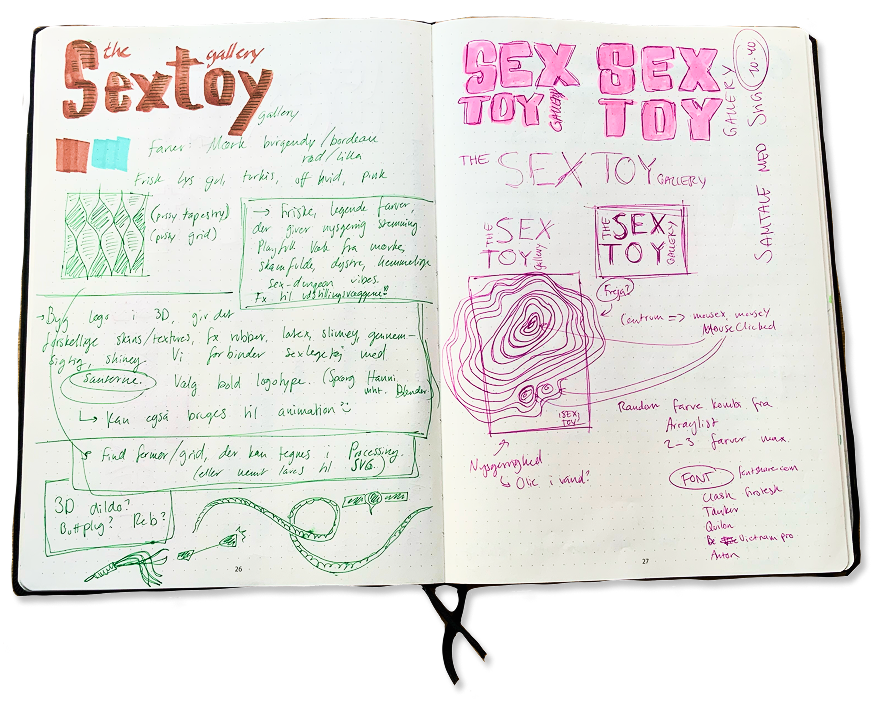 the
gallery
Sextoy
gallery
Farver: Mørk burgundy/bordeau
rød/lilla
Frisk lys gul, turkis, off hvid, pink
(pussy tapestry)
(pussy grid)
→ Friske, legende farver,
der giver nysgerrig stemning
Playfuk Væk fra mørke,
skamfulde, dystre, hemmelige
sex-dungeon vibes.
Fx til udstillingsvæggene?
→ Byg logo i 3D, gir det
forskellige skins/textures, fx rubber, latex, slimey, gennem-
sigtig, shiney. Vi forbinder sexlegetøj med
Sanserne. Vælg bold logotype. (Spørg Hanni
vht. Blender)
↳ Kan også bruges til animation?
Find former/grid, der kan tegnes i Processing.
(eller nemt laves til SVG.)
3D dildo?
Buttplug? Reb?
26
SEX
TOY
GALLERY
SEX
TOY
GALLERY
10.40
SAMTALE MED
THE SEX TOY GALLERY
THE
SEX
TOY
Gallery
THE
SEX
TOY
GALLERY
Freja?
Centrum => mousex, mouseY
MouseClicked
SEX
TOY
Random farve kombi fra
Arraylist
2-3 farver max.
Nysgerrighed
↳ Olie i vand?
FONT
fontshare.com
Clash Grotesk
Tanker
Quilon
Be Vietnam pro
Anton
27